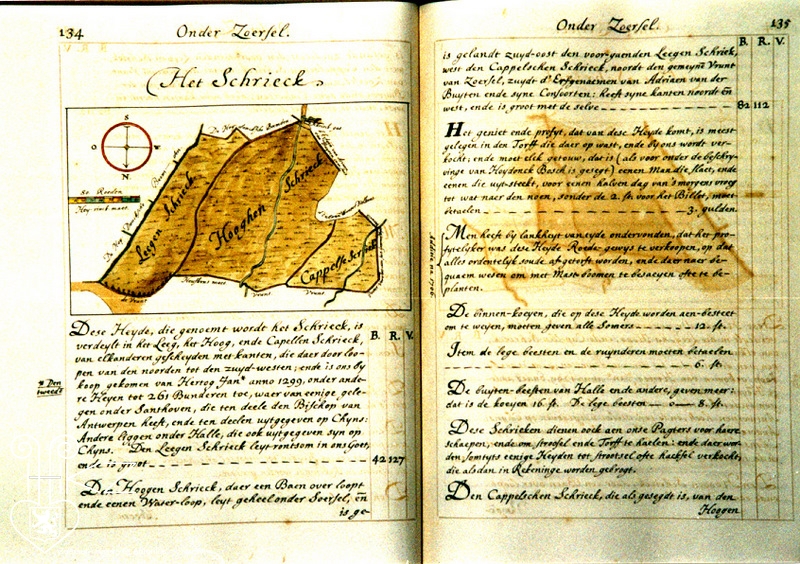 134
Onder Zoersel.
Het Schrieck.
80 Roeden
Leegen Schrieck
Hooghen
Schrieck
Cappelse Schrieck
Dese Heyde, die genoemt wordt het Schrieck, is
verdeylt in het Leeg, het Hoog, ende Capellen Schrieck,
van elkanderen gescheyden met kanten, die daer door loo-
pen van den noorden tot den zuyd-westen; ende is ons by
koop gekomen van Hertog Jan anno 1299, onder ande-
re Heyen tot 261 Bunderen toe, waer van eenige gele-
gen onder Santhoven, die ten deele den Bisschop van
Antwerpen heeft, ende ten deelen uytgegeven op Chyns:
Andere liggen onder Halle, die ook uytgegeven syn op
Chyns. Den Leegen Schrieck leyt rontsom in ons Goet,
ende is groot
B. R. V.
42 127
* Den
tweeden
Den Hoggen Schrieck, daer een Baen over loopt
ende eenen Water-loop, leyt geheel onder Soersel, en
is ge-
Onder Zoersel.
135
B. R. V.
is gelandt zuyd-oost den voorgaenden Leegen Schriek,
west den Cappelschen Schrieck, noordt den gemeyne Vrunt
van Zoersel, zuydt d'Erfgenaemen van Adriaen van der
Buyten ende syne Consoorten: heeft syne kanten noordt en
west, ende is groot met de selve
82 112
Het geniet ende profyt, dat van dese Heyde komt, is meest
gelegen in den Torff die daer op wast, ende by ons wordt ver-
kocht; ende moet elck getouw, dat is (als voor onder de beschry-
vinge van Heydonck Bosch is gesegt) eenen Man die slaet, ende
eenen die uyt-steekt, voor eenen halven dag van 's morgens vroeg
tot wat naer den noen, sonder de 2. st. voor het Billet, moet
betaelen 3. gulden.
Men heeft by lankheyt van tyde ondervonden, dat het pro-
fytelyker was dese Heyde Roede-gewys te verkoopen, op dat
alles ordentelyk soude af-getorft worden, ende daer naer be-
quaem wesen om met Mast-boomen te besaeyen ofte te be-
planten.
De binnen-koeyen, die op dese Heyde worden aen-besteet
om te weyen, moeten geven alle Somers 12. st.
Item de lege beesten en de ruynderen moeten betaelen
6. st.
De buyten-beesten van Halle ende andere, geven meer:
dat is de koeyen 16 st. De lege beesten 8. st.
Dese Schrieken dienen oock aen onse Pagters voor haere
schaepen, ende om stroosel ende Torf te haelen: ende daer wor-
den somtyts eenige Heyden tot strootsel ofte hacksel verkocht,
die alsdan in Rekeninge worden gebrogt.
Den Cappelschen Schrieck, die als gesegdt is, van den
Hoggen